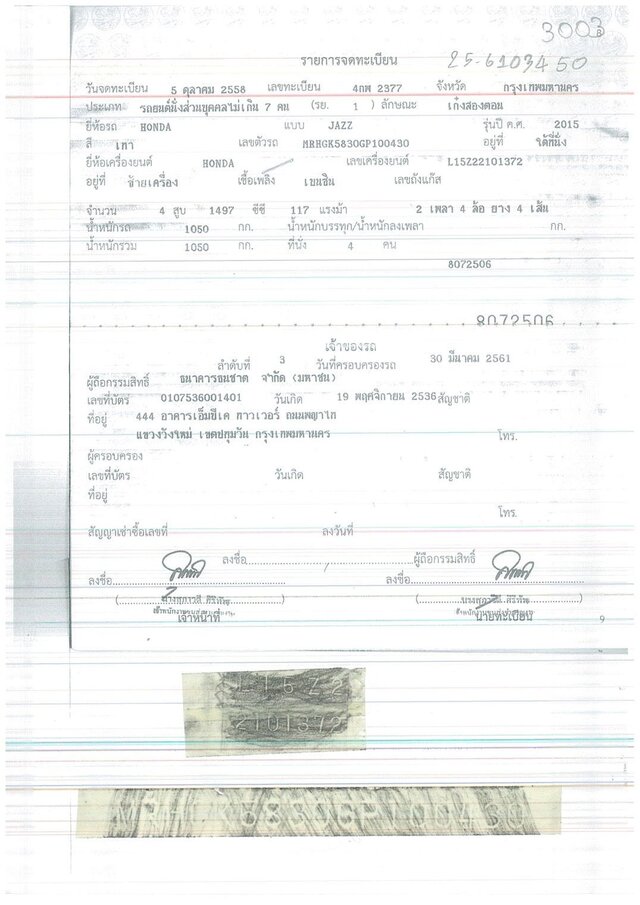 3003
25-6103450
รายการจดทะเบียน
วันจดทะเบียน 5 ตุลาคม 2558 เลขทะเบียน 4กพ 2377 จังหวัด กรุงเทพมหานคร
ประเภท รถยนต์นั่งส่วนบุคคลไม่เกิน 7 คน (รย. 1 ) ลักษณะ เก๋งสองตอน
ยี่ห้อรถ HONDA แบบ JAZZ รุ่นปี ค.ศ. 2015
สี เทา เลขตัวรถ MRHGK5830GP100430 อยู่ที่ ใต้ที่นั่ง
ยี่ห้อเครื่องยนต์ HONDA เลขเครื่องยนต์ L15Z22101372
อยู่ที่ ซ้ายเครื่อง เชื้อเพลิง เบนซิน เลขถังแก๊ส
จำนวน 4 สูบ 1497 ซีซี 117 แรงม้า 2 เพลา 4 ล้อ ยาง 4 เส้น
น้ำหนักรถ 1050 กก. น้ำหนักบรรทุก/น้ำหนักลงเพลา กก.
น้ำหนักรวม 1050 กก. ที่นั่ง 4 คน
8072506
8072506
เจ้าของรถ
ลำดับที่ 3 วันที่ครอบครองรถ 30 มีนาคม 2561
ผู้ถือกรรมสิทธิ์ ธนาคารธนชาต จำกัด (มหาชน)
เลขที่บัตร 0107536001401 วันเกิด 19 พฤศจิกายน 2536 สัญชาติ
ที่อยู่ 444 อาคารเอ็มบีเค ทาวเวอร์ ถนนพญาไท
แขวงวังใหม่ เขตปทุมวัน กรุงเทพมหานคร โทร.
ผู้ครอบครอง
เลขที่บัตร วันเกิด สัญชาติ
ที่อยู่
โทร.
สัญญาเช่าซื้อเลขที่ ลงวันที่
ลงชื่อ ผู้ถือกรรมสิทธิ์
ลงชื่อ ลงชื่อ
เจ้าหน้าที่ นายทะเบียน
9
L15Z2
2101372
MRHGK5830GP100430